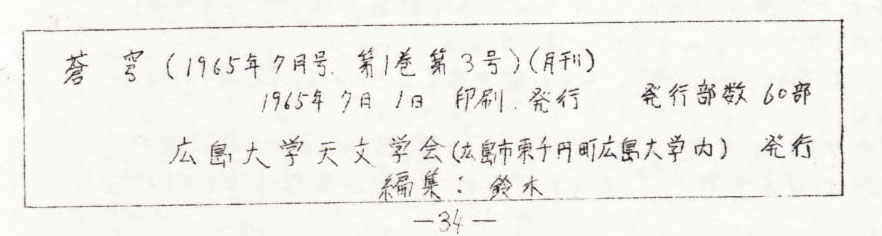 蒼穹(1965年7月号.第1巻第3号)(月刊)
1965年7月1日 印刷.発行 発行部数60部
広島大学天文学会(広島市東千円町広島大学内) 発行
編集: 鈴木
—34—